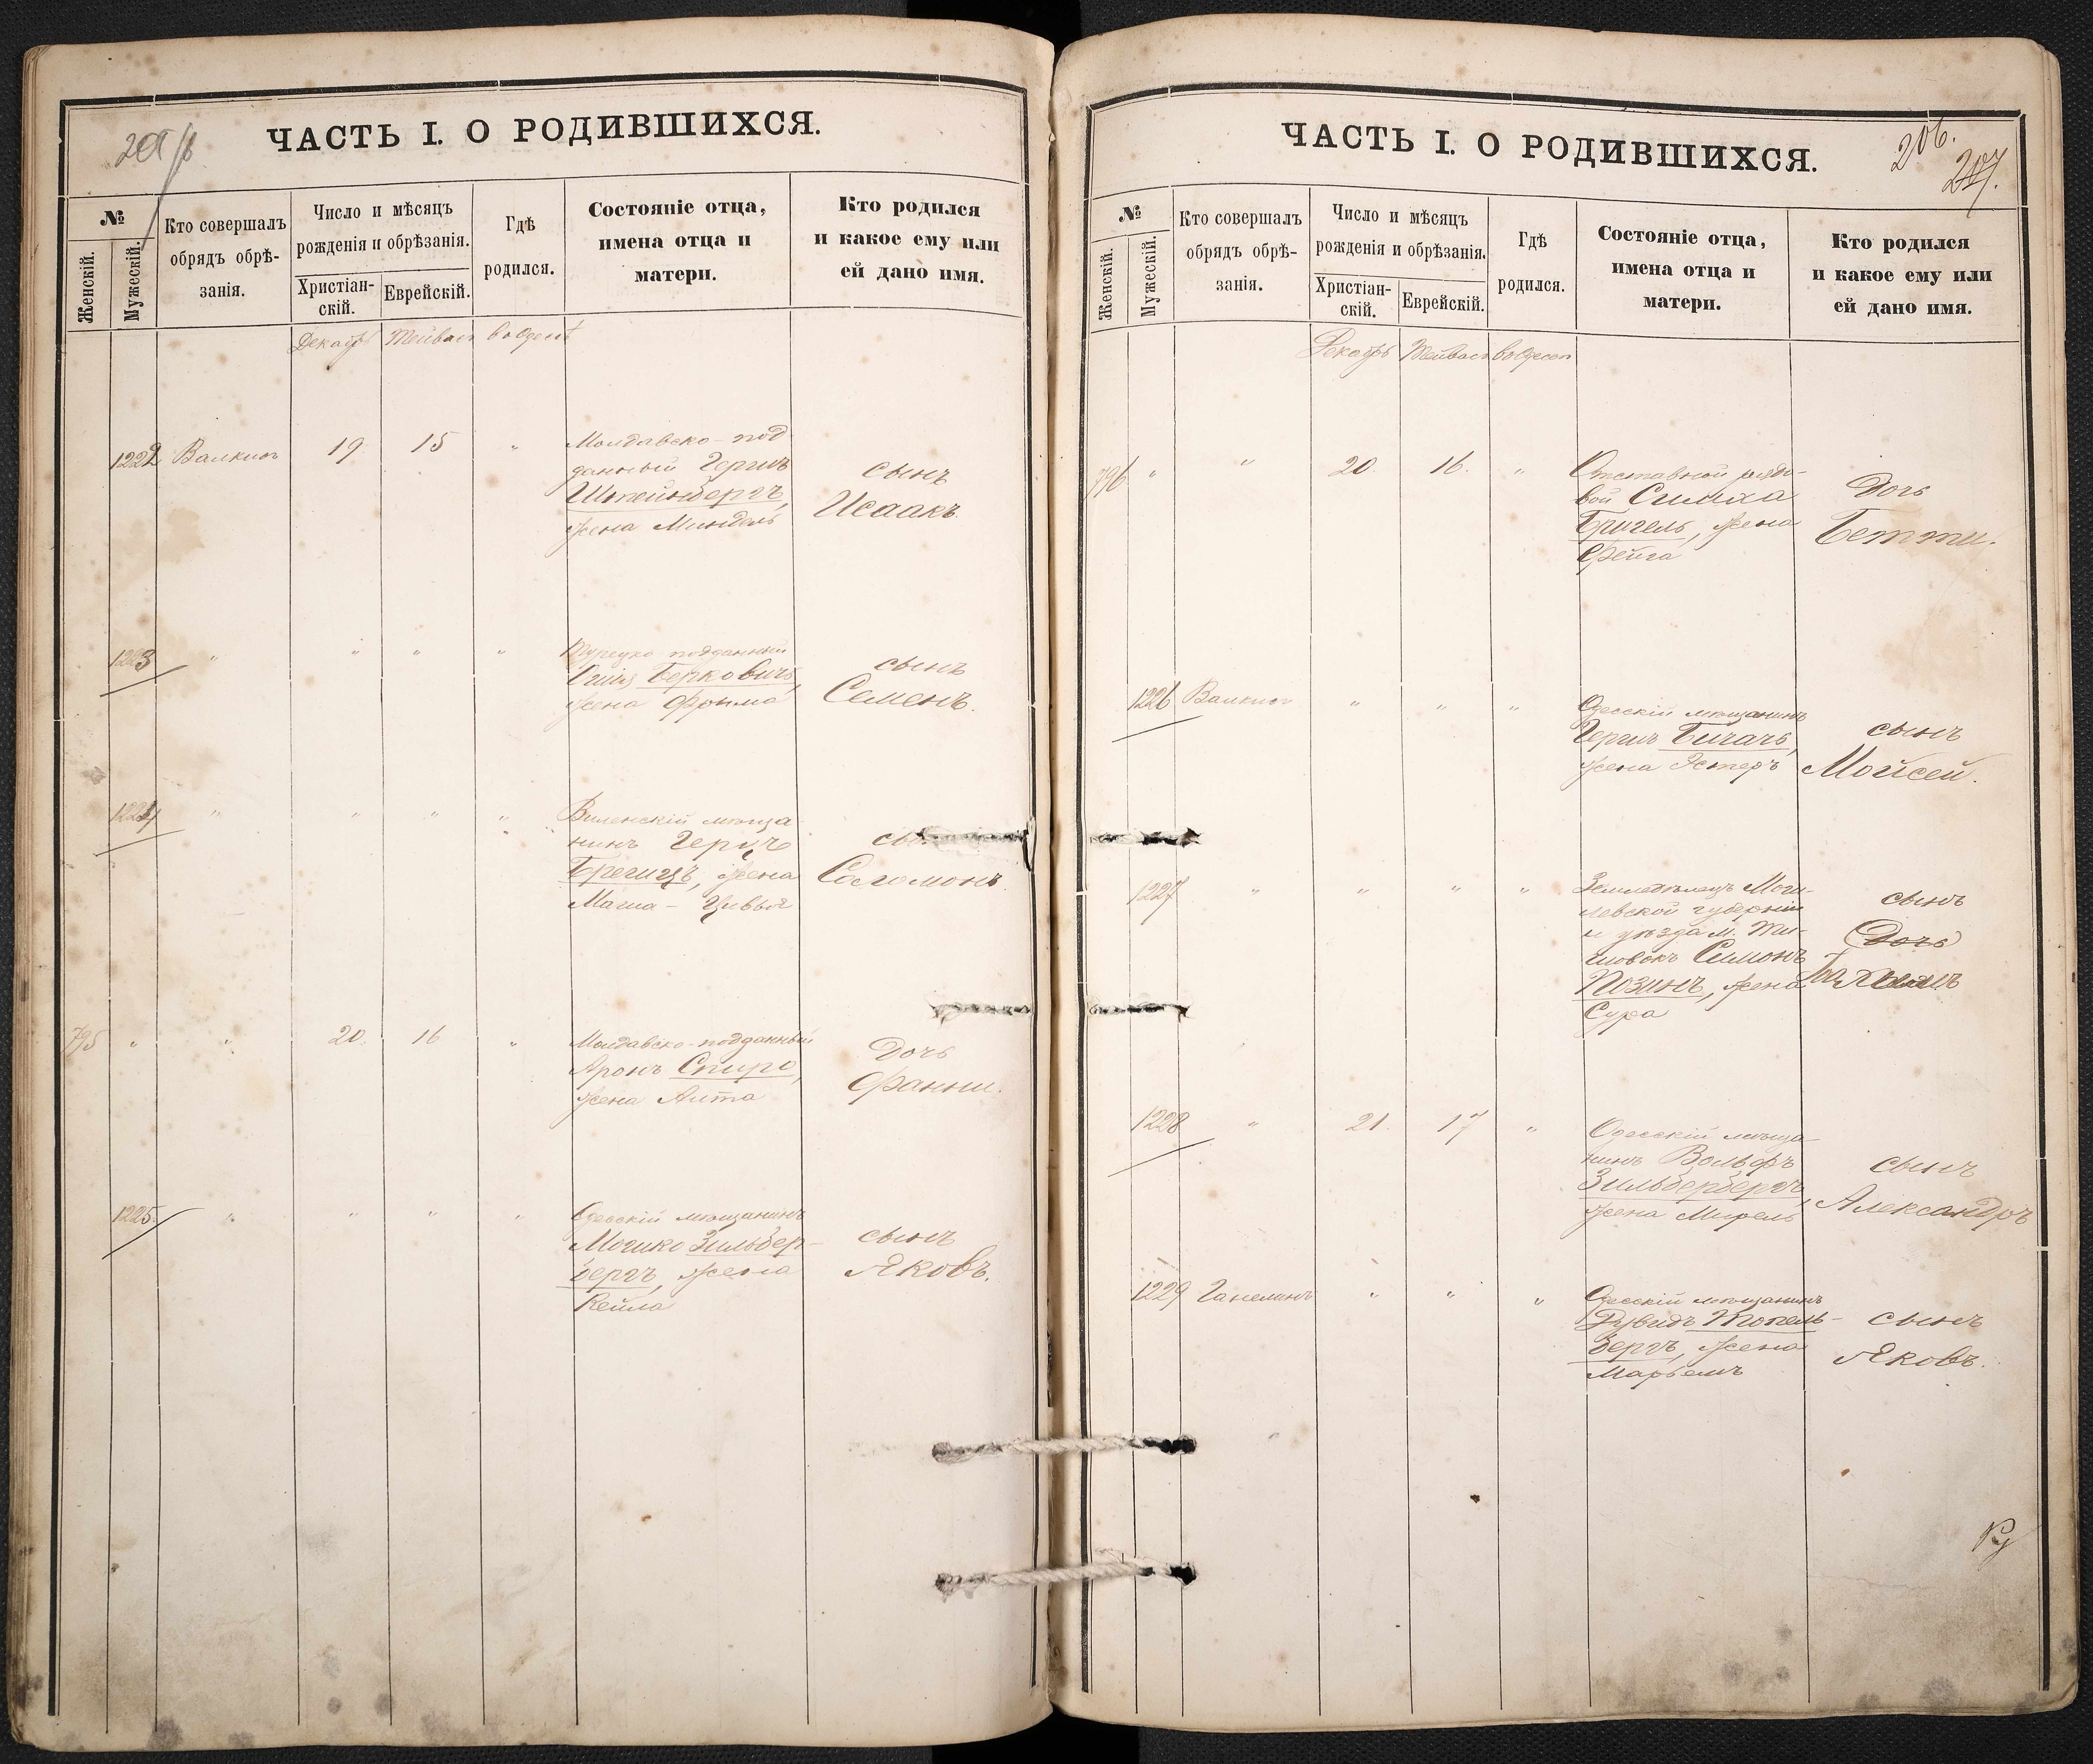 ЧАСТЬ I. О РОДИВШИХСЯ.
№
Женскій.
Мужескій.
Кто совершалъ
обрядъ обрѣ-
занія.
Число и мѣсяцъ
рожденія и обрѣзанія.
Христіан-
скій.
Еврейскій.
Гдѣ
родился.
Состояніе отца,
имена отца и
матери.
Кто родился
и какое ему или
ей дано имя.
Декабрь Тейвасъ въ Одессѣ
1222 Валкинъ 19 15 "
Молдавско-под
данный Гершъ
Штейнбергъ,
жена Миндель
сынъ
Исаакъ.
1223 " " " "
Турецко подданный
Беркович,
жена Фрима
сынъ
Семенъ.
1224 " " " "
Виленскій мѣща
нинъ Герцъ
жена
Маша - Цивья
Соломонъ
795 " " 20. 16 "
Молдавско-подданный
Аронъ Спиро,
жена
Дочь
Фанни.
1225. " " " "
Одесскій мѣщанинъ
Мошко Зильбер-
бергъ, жена
Кейла
сынъ
Яковъ.
ЧАСТЬ I. О РОДИВШИХСЯ.
206.
207.
№
Женскій.
Мужескій.
Кто совершалъ
обрядъ обрѣ-
занія.
Число и мѣсяцъ
рожденія и обрѣзанія.
Христіан-
скій.
Еврейскій.
Гдѣ
родился.
Состояніе отца,
имена отца и
матери.
Кто родился
и какое ему или
ей дано имя.
Декабрь Тейвасъ въ Одессѣ
796 " " 20. 16. "
Отставной рядо-
вой Симха
Бригель, жена
Фейга
Дочь
Бетти.
1226 Валкинъ " " "
Одесскій мѣщанинъ
Гершъ Бигачъ,
жена Эстеръ
сынъ
Мойсей.
1227 " " " "
Земледѣлецъ Моги-
левской губерніи
и уѣзда м.
Симонъ
Позинъ, жена
Сура
сынъ
Дочь
1228 " 21. 17 "
Одесскій мѣща-
нинъ Вольфъ
Зильбербергъ,
жена Мирель
сынъ
Александръ
1229 Ганелинъ " " "
Одесскій мѣщанинъ
Дувидъ Топель-
бергъ, жена
Марьемъ
сынъ
Яковъ.